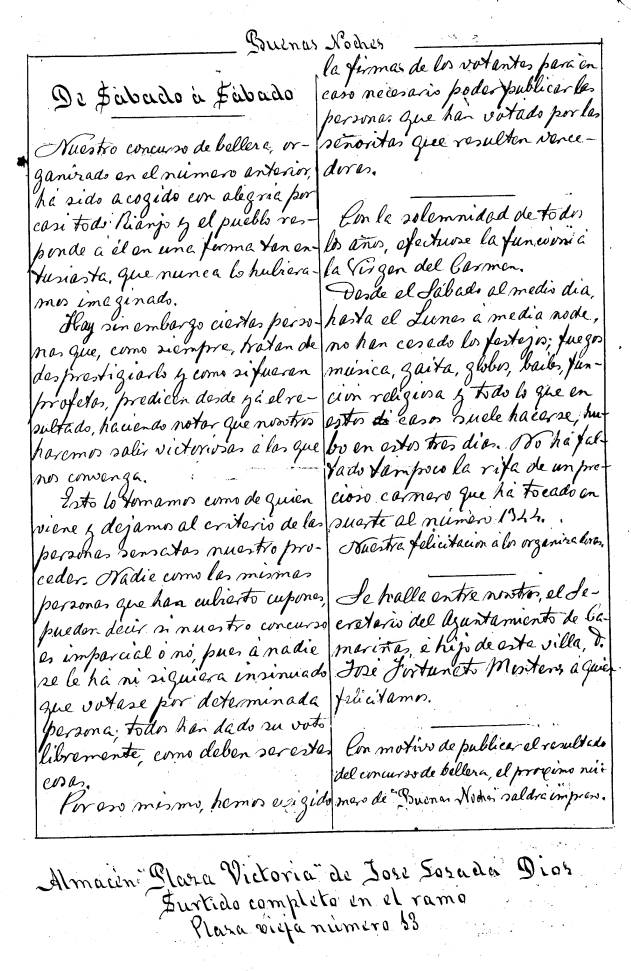 Buenas Noches
De Sábado á Sábado
Nuestro concurso de belleza, or-
ganizado en el número anterior,
há sido acogido con alegría por
casi todo Rianjo y el pueblo res-
ponde á él en una forma tan en-
tusiasta, que nunca lo hubiera-
mos imaginado.
Hay sin embargo ciertas perso-
nas que, como siempre, tratan de
desprestigiarlo y como si fueran
profetas, predicen desde yá el re-
sultado, haciendo notar que nosotros
haremos salir victoriosas á las que
nos convenga.
Esto lo tomamos como de quien
viene y dejamos al criterio de las
personas sensatas nuestro pro-
ceder. Nadie como las mismas
personas que han cubierto cupones,
pueden decir si nuestro concurso
es imparcial ó nó, pues á nadie
se le há ni siquiera insinuado
que votase por determinada
persona; todos han dado su voto
libremente, como deben ser estas
cosas.
Por eso mismo, hemos exigido
la firma de los votantes para en
caso necesario poder publicar las
personas que han votado por las
señoritas que resulten vence-
doras.
Con la solemnidad de todos
los años, efectuose la función á
la Virgen del Carmen.
Desde el Sábado al medio dia,
hasta el Lunes á media noche,
no han cesado los festejos; fuegos
música, gaita, globos, bailes, fun-
ción religiosa y todo lo que en
estos casos suele hacerse, hu-
bo en estos tres dias. No há fal-
tado tampoco la rifa de un pre-
cioso carnero que há tocado en
suerte al número 1344.
Nuestra felicitacion á los organizadores.
Se halla entre nosotros, el Se-
cretario del Ayuntamiento de Ca-
mariñas, é hijo de esta villa, D.
José Fortunato á quien
felicitamos.
Con motivo de publicar el resultado
del concurso de belleza, el proximo nú-
mero de "Buenas Noches" saldrá impreso.
Almacén "Plaza Victoria" de José Losada Dios
Surtido completo en el ramo
Plaza vieja número 13